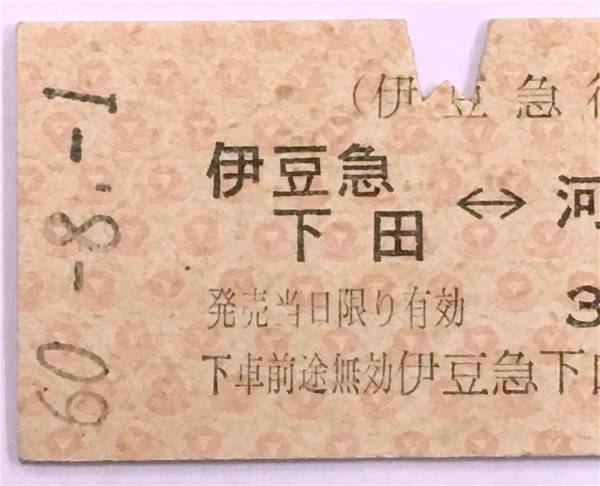 60.-8.-1
(伊豆急
伊豆急
下田 ↔ 河
発売当日限り有効 3
下車前途無効伊豆急下